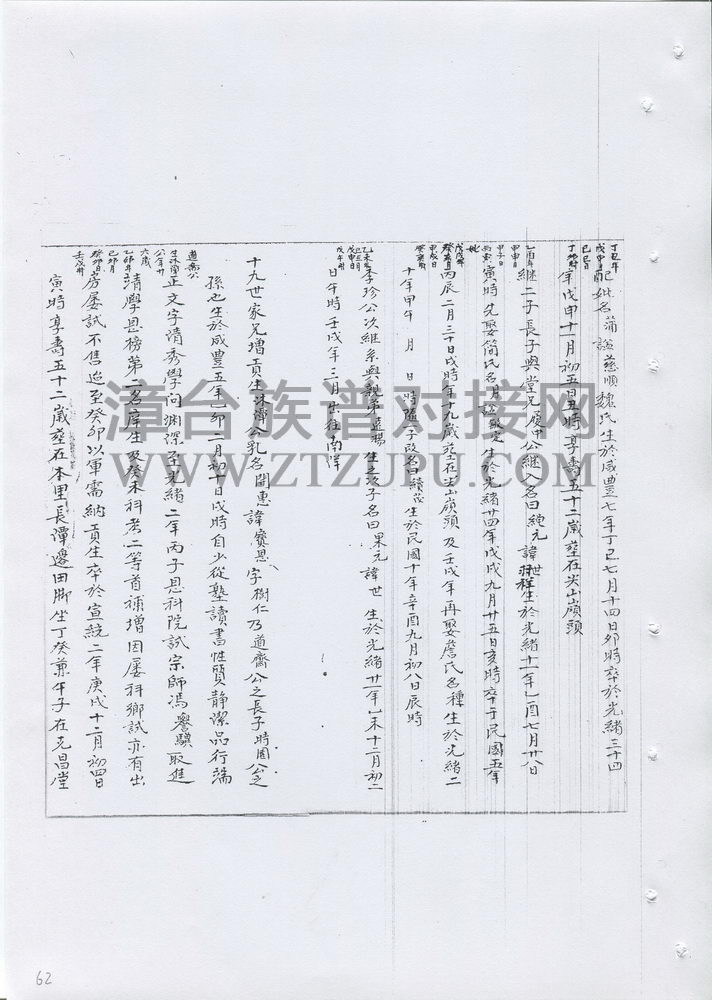 配妣名蒲謚慈順魏氏生於咸豐七年丁巳七月十四日卯時卒於光緒三十四
年戊申十一月初五日丑時享壽五十二歲葬在尖山嶺頭
繼二子長子與堂兄履中公繼入名曰綿元諱世祥生於光緒十一年乙酉七月廿八
寅時先娶簡氏名月謚敬定生於光緒廿四年戊戌九月廿五日亥時卒于民國五年
丙辰二月三十日戌時年十九歲葬在尖山嶺頭及壬戌年再娶詹氏名種生於光緒二
十年甲午 月 日 時 子 名曰 生於民國十年辛酉九月初八日辰時
季珍公次維系與親弟 生之次子名曰果元諱世 生於光緒廿一年乙未十二月初二
日午時壬戌年三月出往南洋
十九世家兄增貢生 公乳名開惠諱賓恩字樹仁乃道齋公之長子時園公之
孫也生於咸豐五年乙卯二月初十日戌時自少從塾讀書性質靜潔品行端
正文字清秀學問淵深至光緒二年丙子恩科院試宗師馮譽驥取進
靖學恩榜第二名庠生及癸未科考二等首補增因屢科鄉試亦有出
房屢試不售迨至癸卯以軍需納貢生卒於宣統二年庚戌十二月初四日
寅時享壽五十二歲葬在本里長潭邊田腳坐丁癸兼午子在克昌堂
漳台族谱对接网
WWW.ZTZUPU.COM
62